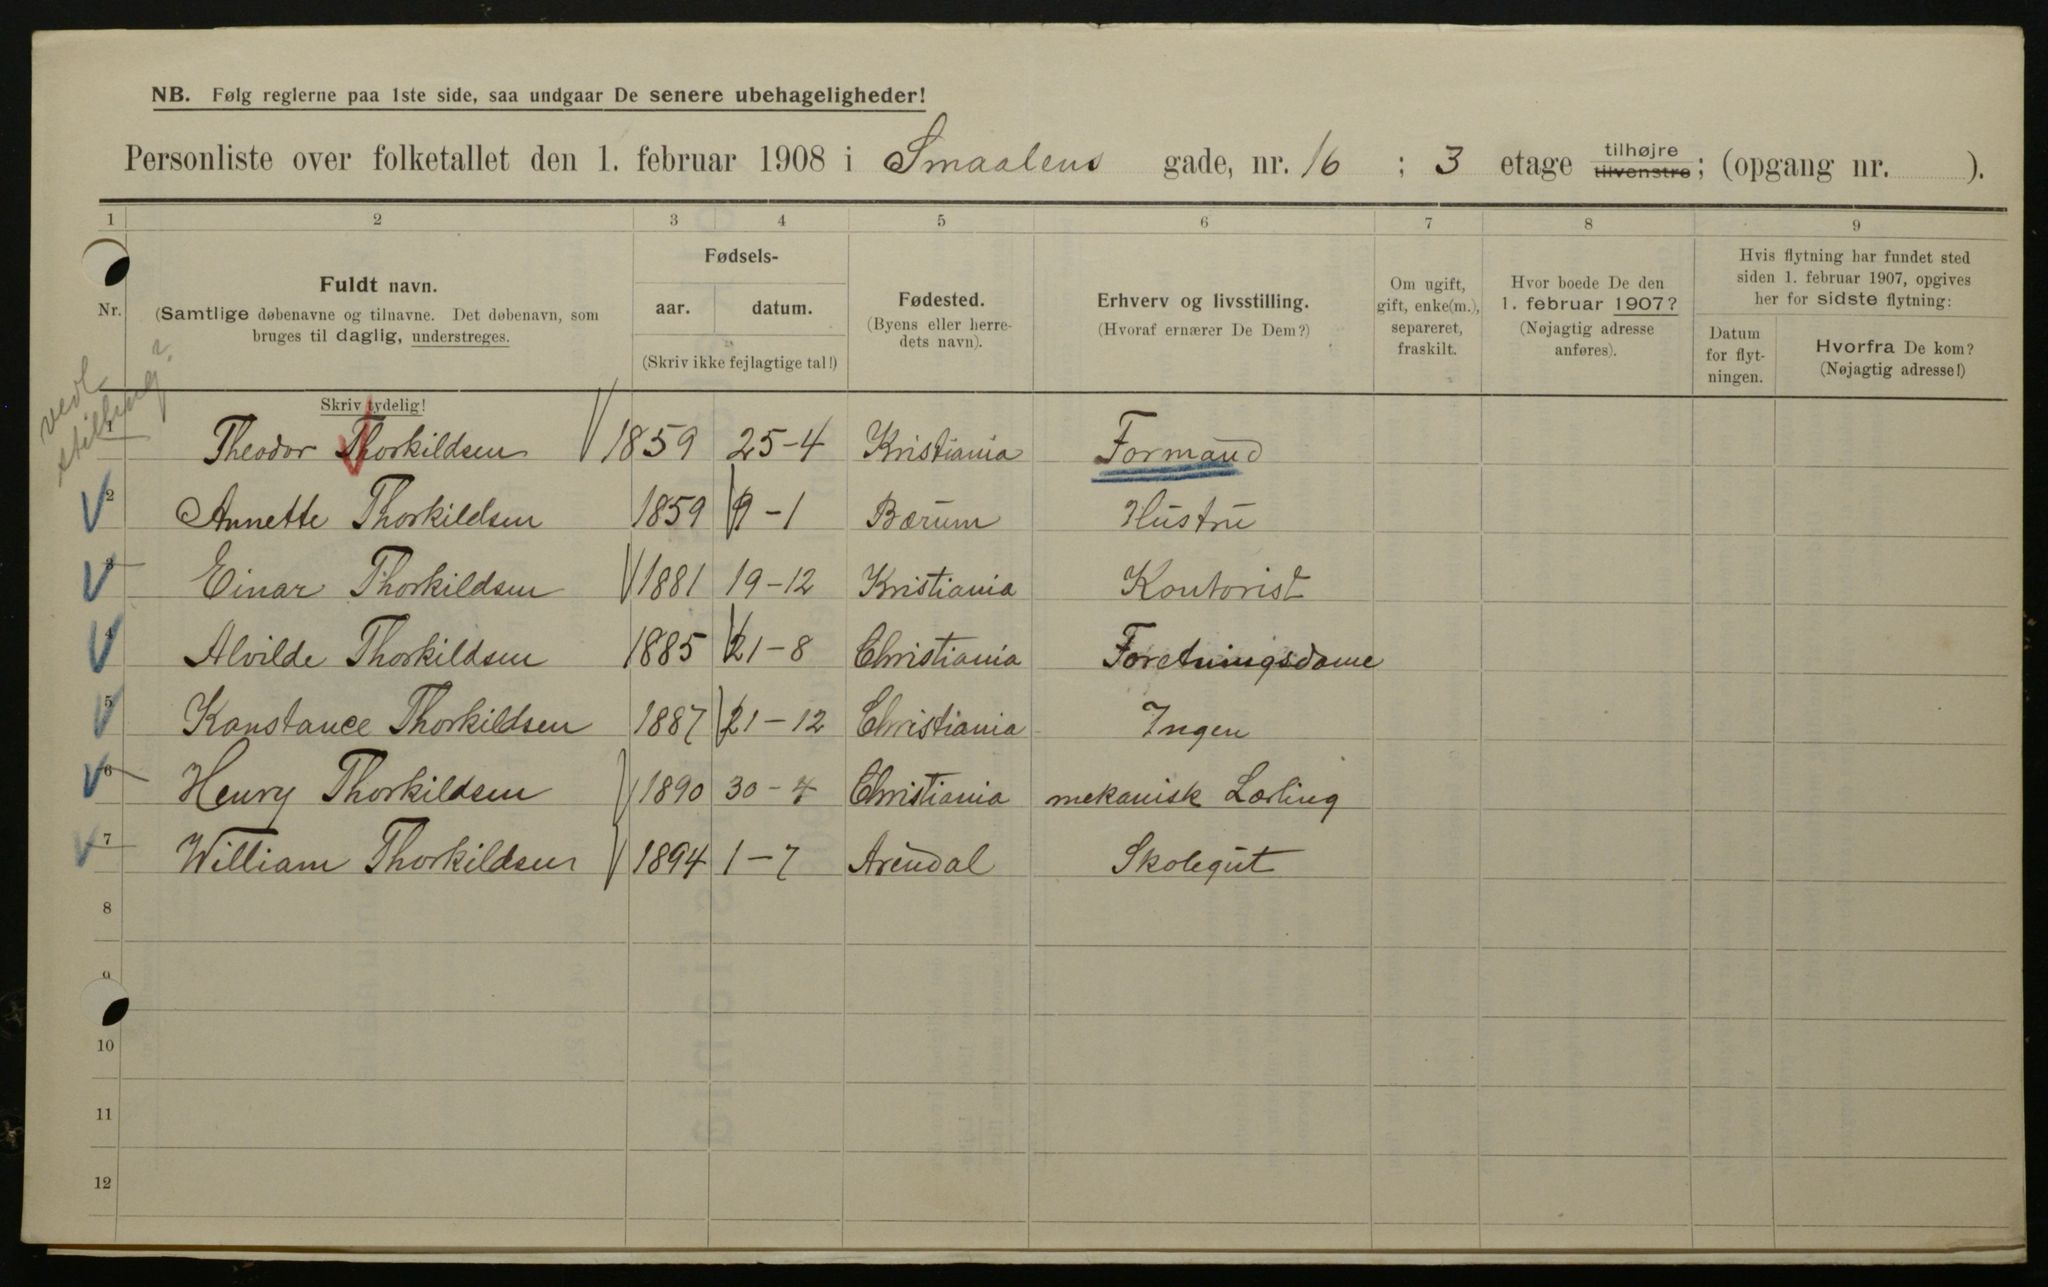 NB. Følg reglerne paa 1ste side, saa undgaar De senere ubehageligheder!
Personliste over folketallet den 1. februar 1908 i Smaalens gade, nr. 16 ; 3 etage tilhøjre tilvenstre; (opgang nr. ).
1 2 3 4 5 6 7 8 9
Nr.
Fuldt navn.
(Samtlige døbenavne og tilnavne. Det døbenavn, som
bruges til daglig, understreges.
Skriv tydelig!
Fødsels-
aar. datum.
(Skriv ikke fejlagtige tal!)
Fødested.
(Byens eller herre-
dets navn).
Erhverv og livsstilling.
(Hvoraf ernærer De Dem?)
Om ugift,
gift, enke(m.),
separeret,
fraskilt.
Hvor boede De den
1. februar 1907?
(Nøjagtig adresse
anføres).
Hvis flytning har fundet sted
siden 1. februar 1907, opgives
her for sidste flytning:
Datum
for flyt-
ningen.
Hvorfra De kom?
(Nøjagtig adresse!)
vedl.
stilling?
1 Theodor Thorkildsen 1859 25-4 Kristiania Formand
2 Annette Thorkildsen 1859 9-1 Bærum Hustru
3 Einar Thorkildsen 1881 19-12 Kristiania Kontorist
4 Alvilde Thorkildsen 1885 21-8 Christiania Foretningsdame
5 Konstance Thorkildsen 1887 21-12 Christiania Ingen
6 Henry Thorkildsen 1890 30-4 Christiania mekanisk Lærling
7 William Thorkildsen 1894 1-7 Arendal Skolegut
8
9
10
11
12